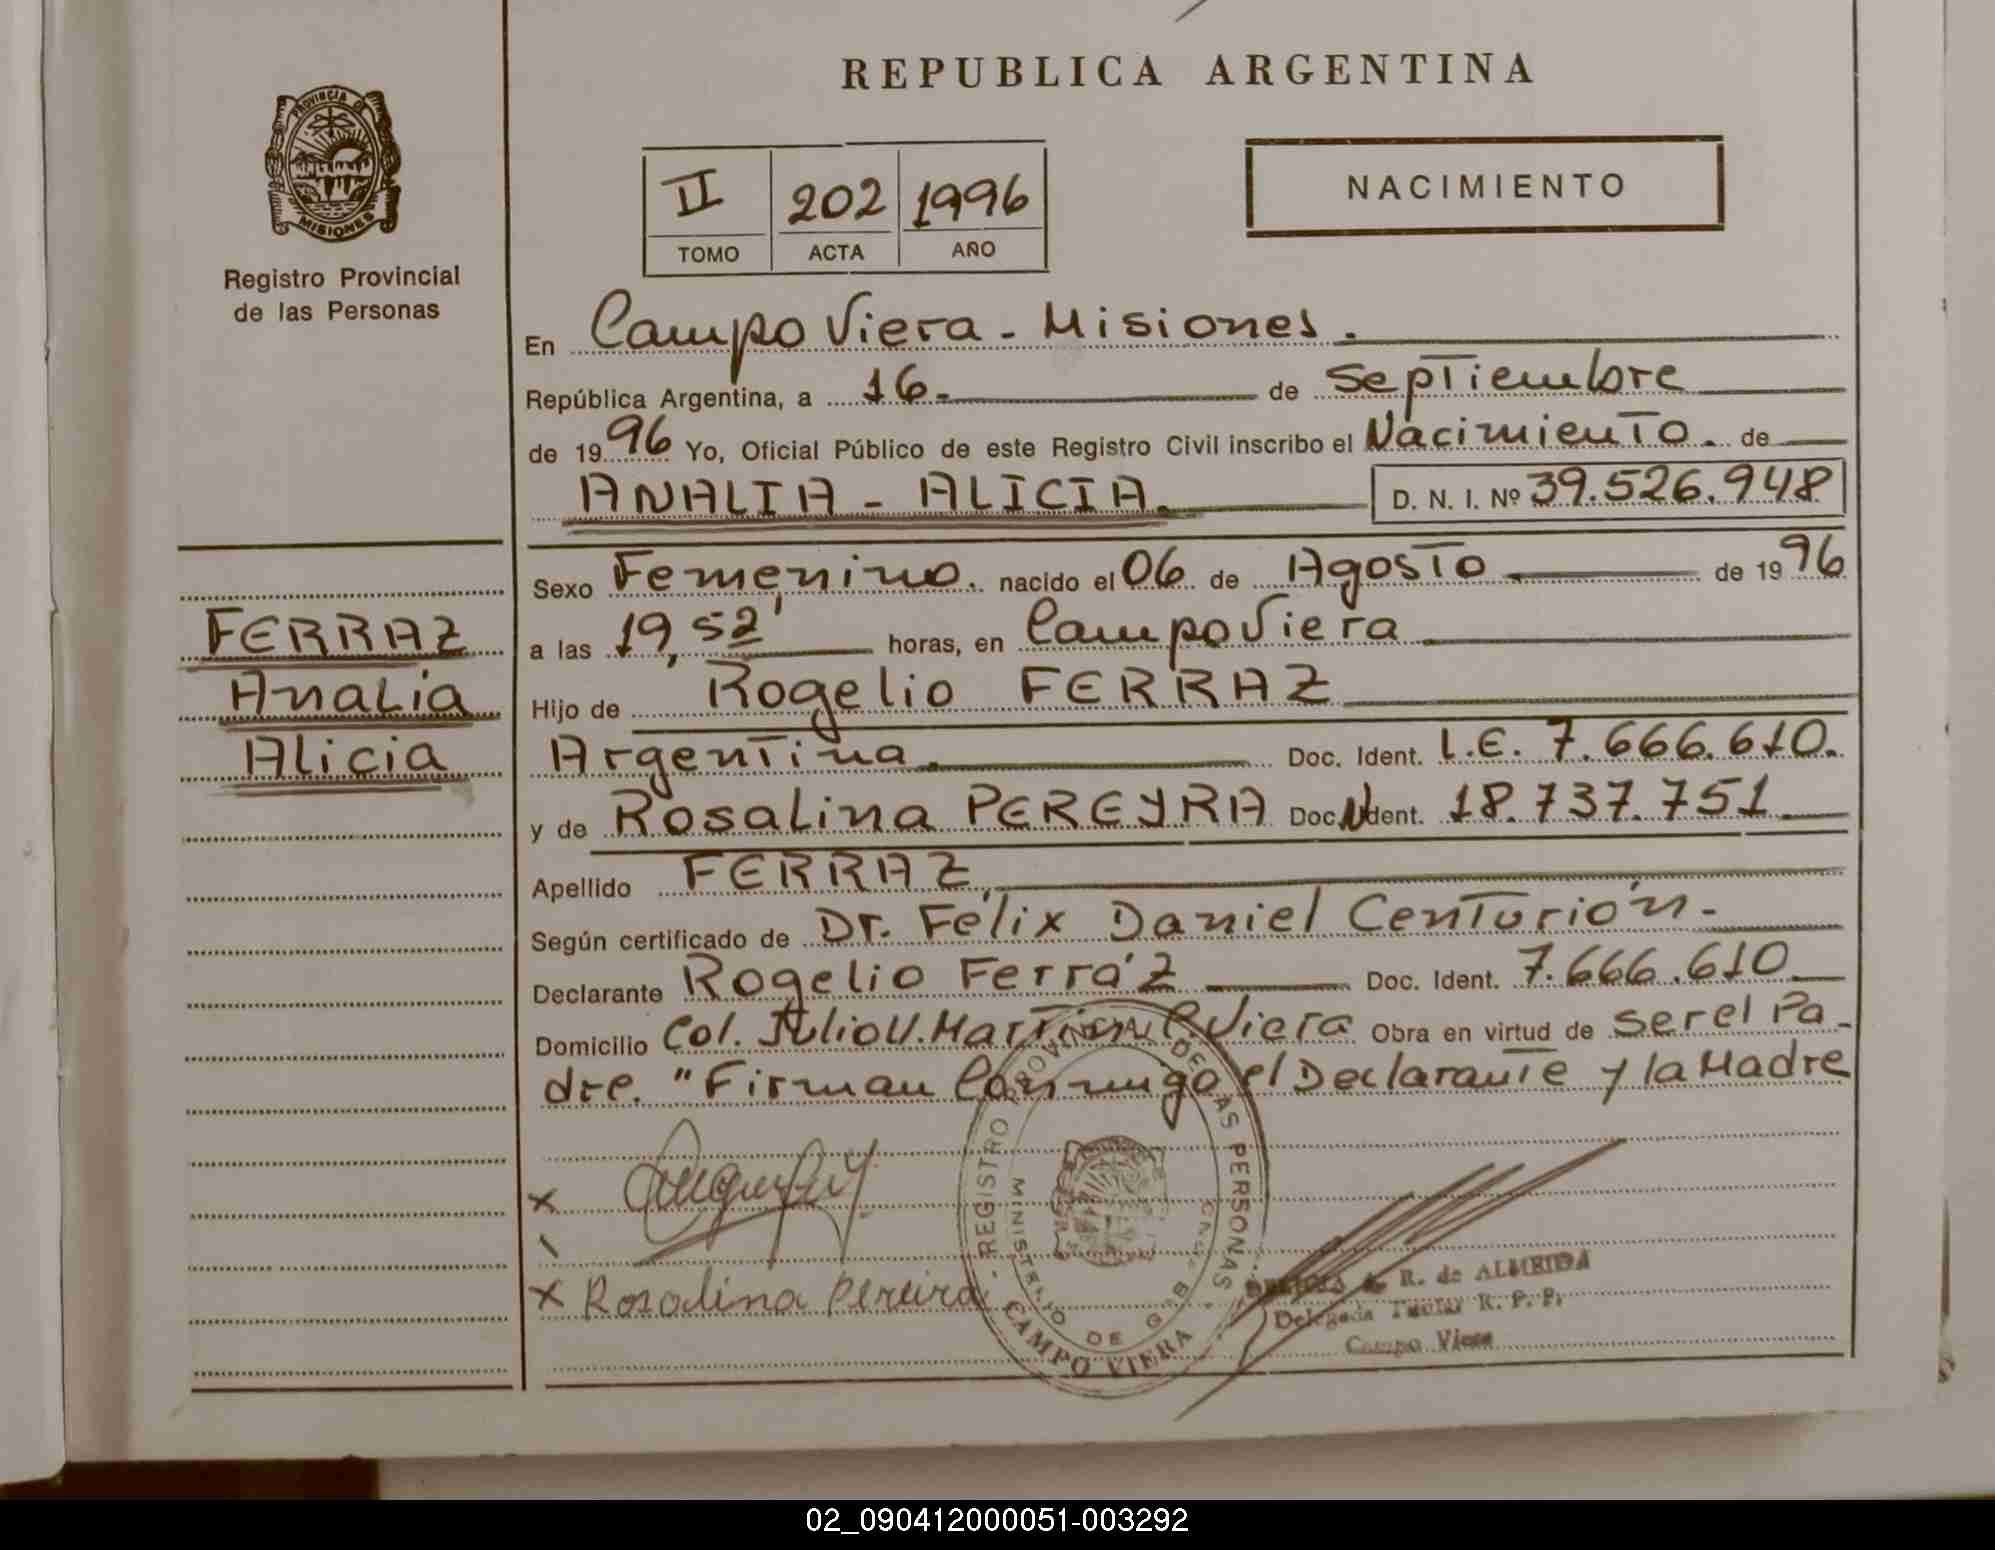 REPUBLICA ARGENTINA
PROVINCIA DE
MISIONES
Registro Provincial
de las Personas
II 202 1996
TOMO ACTA AÑO
NACIMIENTO
En Campo Viera - Misiones.
República Argentina, a 16- de Septiembre
de 1996 Yo, Oficial Público de este Registro Civil inscribo el Nacimiento. de
ANALIA - ALICIA. D. N. I. Nº 39.526.948
Sexo Femenino. nacido el 06 de Agosto de 1996
FERRAZ
Analia
Alicia
a las 19,52' horas, en Campo Viera
Hijo de Rogelio FERRAZ
Argentina. Doc. Ident. L.E. 7.666.610.
y de Rosalina PEREYRA Doc. Ident. 18.737.751
Apellido FERRAZ
Según certificado de Dr. Félix Daniel Centurión.-
Declarante Rogelio Ferráz Doc. Ident. 7.666.610
Domicilio Col. Julio U. Martín C. Viera Obra en virtud de ser el Pa-
dre. "Firman Conmigo el Declarante y la Madre
x
x Rosalina Pereira
REGISTRO PROVINCIAL DE LAS PERSONAS
MINISTERIO DE GOB
CAMPO VIERA
R. de ALMEIDA
Delegada Titular R. P. P.
Campo Viera
02_090412000051-003292